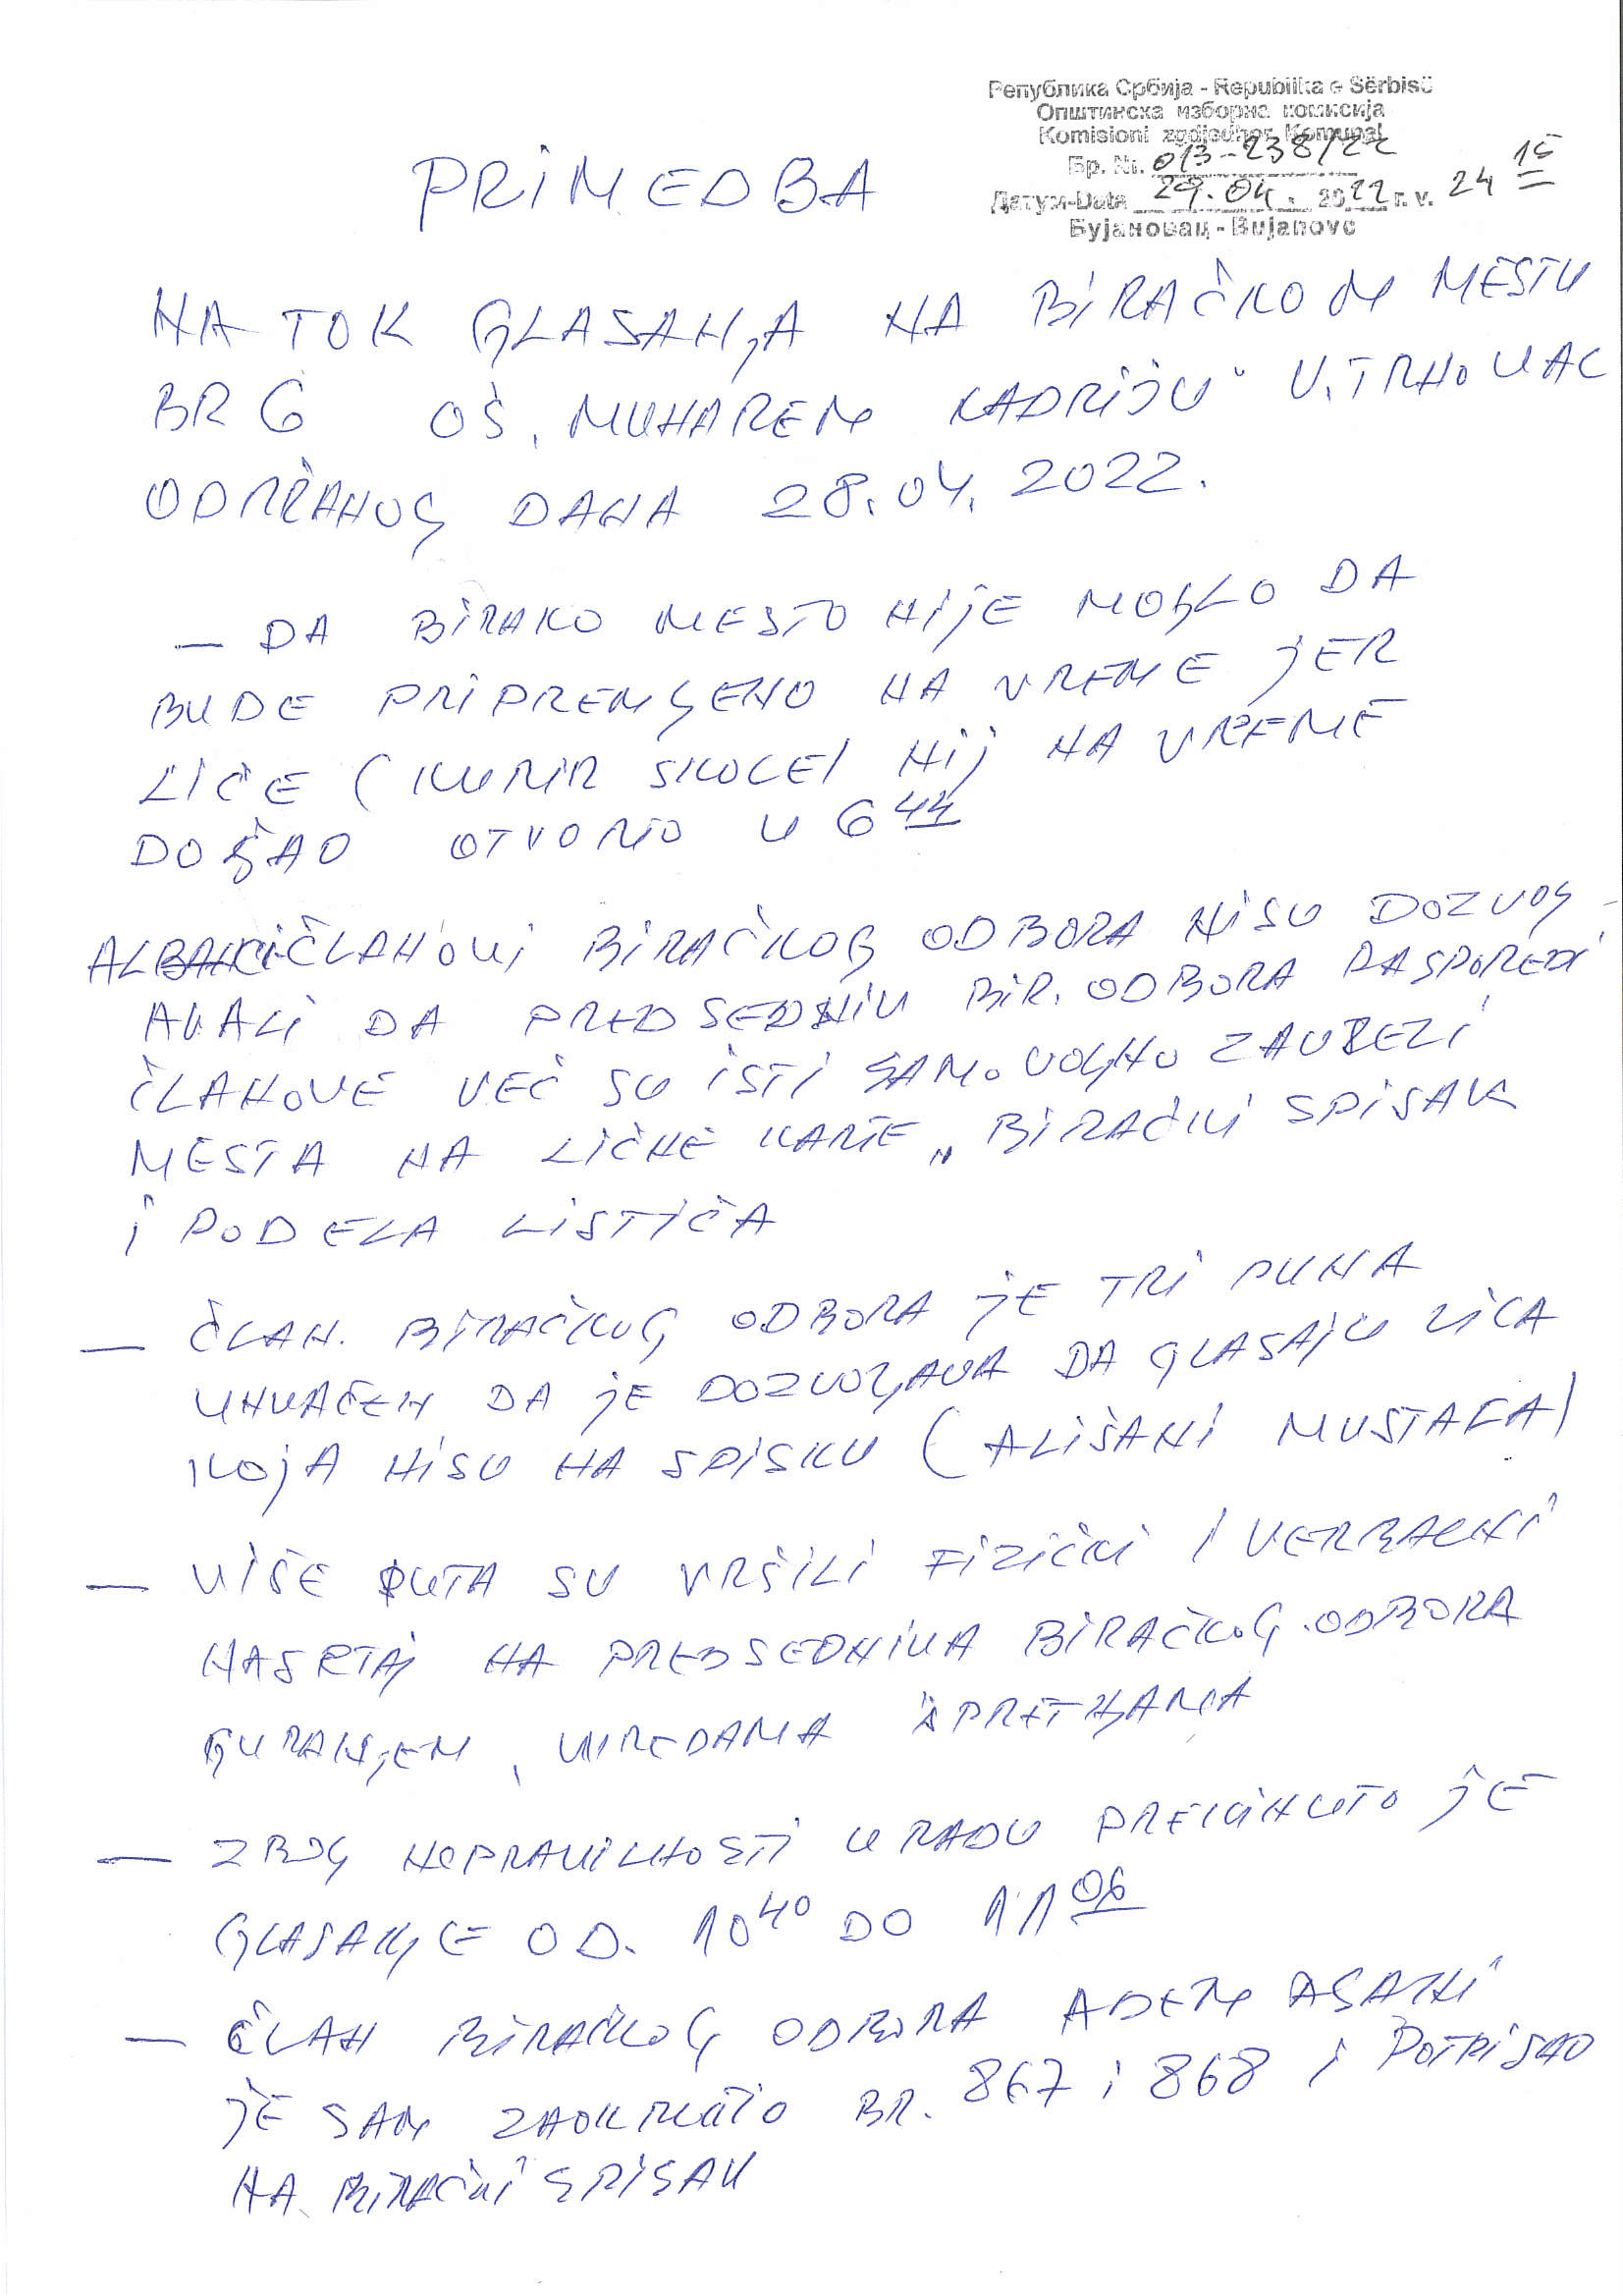 Република Србија - Republika e Sërbisë
Општинска изборна комисија
Komisioni zgjedhor Komunal
Бр. Nr. 013-238/22
Датум-Data 29.04. 2022 г. v. 24 15
Бујановац - Bujanovc
PRIMEDBA
NA TOK GLASANJA NA BIRAČKOM MESTU
BR 6 OŠ. MUHAREM KADRIJU" V. TRNOVAC
ODRŽANOG DANA 28.04.2022.
— DA BIRAKO MESTO NIJE MOGLO DA
BUDE PRIPREMJENO NA VREME JER
LICE (KURIR SKOLE) NIJ NA VREME
DOŠAO OTVORIO U 6 44
ČLANOVI BIRAČKOG ODBORA NISU DOZVOJ-
AVALI DA PREDSEDNIK BIR. ODBORA RASPOREDI
ČLANOVE VEĆ SU ISTI SAMOVOJNO ZAUZELI
MESTA NA LIČNE KARTE, BIRAČKI SPISAK
I PODELA LISTIĆA
— ČLAN. BIRAČKOG ODBORA JE TRI PUNA
UHVAĆEN DA JE DOZVOJAVA DA GLASAJU LICA
KOJA NISU NA SPISKU (ALIŠANI MUSTAFA)
— VIŠE PUTA SU VRŠILI FIZIČKI I VERBALNI
NASRTAJ NA PREDSEDNIKA BIRAČKOG ODBORA
GURANJEM, UVREDAMA I PRETNJAMA
— ZBOG NEPRAVILNOSTI U RADU PREKINUTO JE
GLASANJE OD. 10 40 DO 11 06
— ČLAN BIRAČKOG ODBORA ADEM ASATHI
JE SAM ZAOKRUŽIO BR. 867 I 868 I POTPISAO
NA BIRAČKI SPISAK